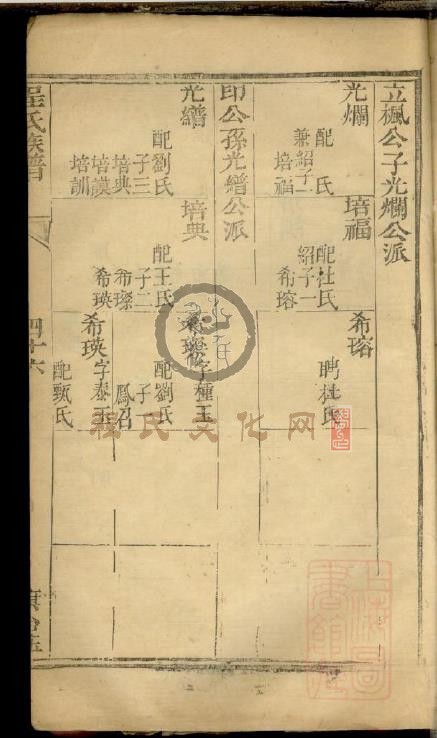 立楓公子光爛公派
光爛
配 氏
兼紹子一
培福
培福
配杜氏
紹子一
希瑢
希瑢
聘杜氏
印公孫光縉公派
光縉
配劉氏
子三
培典
培謨
培訓
培典
配王氏
子二
希璨
希瑛
希璨字種玉
配劉氏
子一
鳳召
希瑛字泰玉
配甄氏
程氏族譜
四十六
程氏文化网
上海圖書館藏